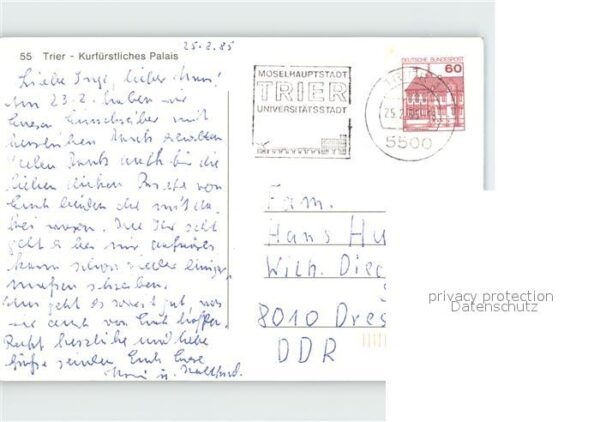 25.2.85
55 Trier - Kurfürstliches Palais
Liebe Inge, lieber Hans!
Am 23.2. haben wir
Euren Einschreiber mit
herzlichen Dank erhalten
Vielen Dank auch für die
lieben dicken Briefe von
Euch beiden die mit da
bei waren.
geht es hier mir aufwärts
kann schon wieder einiger
maßen schreiben.
Uns geht es sonst gut, was
wir auch von Euch hoffen.
Recht herzliche und liebe
Grüße senden Euch Eure
u.
MOSELHAUPTSTADT
TRIER
UNIVERSITÄTSSTADT
DEUTSCHE BUNDESPOST
60
25.2.85
5500
Fam.
Hans Hu
Wilh. Diec
8010 Dres
DDR
privacy protection
Datenschutz